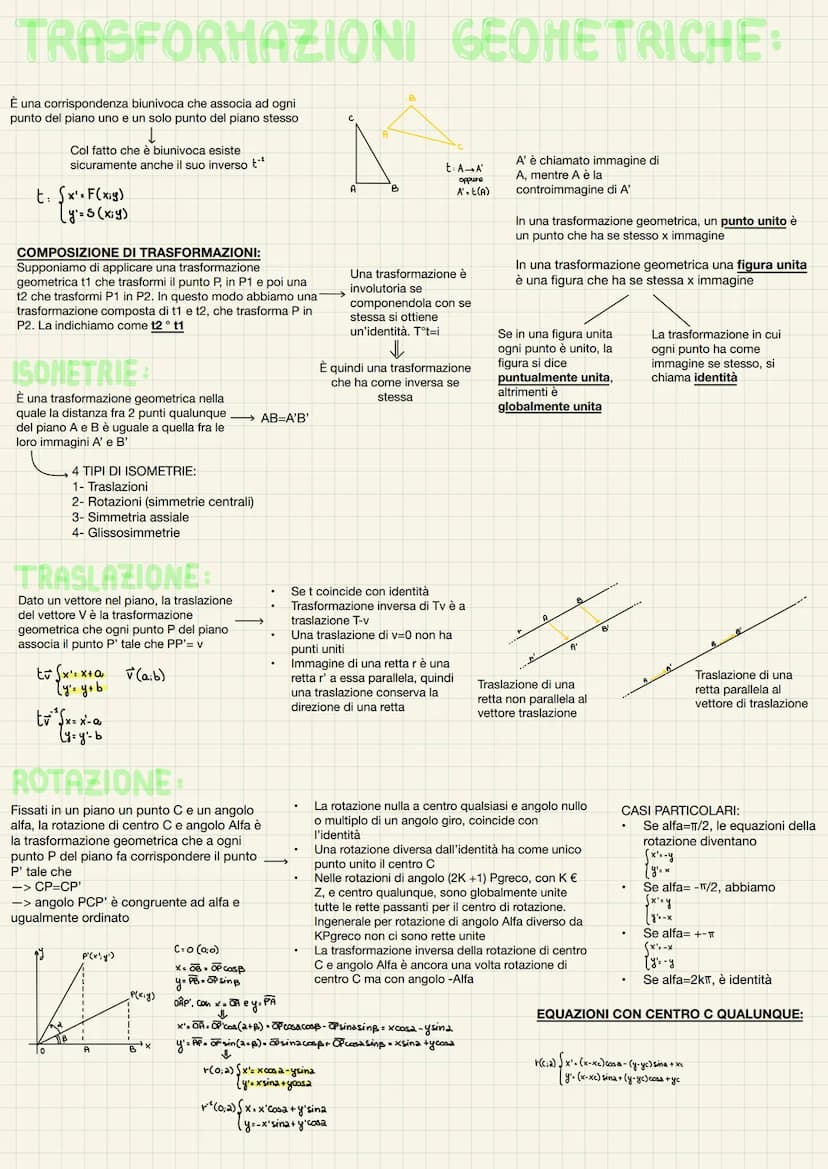 TRASFORMAZIONI GEOMETRICHE:
È una corrispondenza biunivoca che associa ad ogni
punto del piano uno e un solo punto del piano stesso
Col fatto che è biunivoca esiste
sicuramente anche il suo inverso t⁻¹
t: {x'=F(x;y)
y'=S(x;y)
C
A
B
B
A
C
t: A→A'
oppure
A'=t(A)
A' è chiamato immagine di
A, mentre A è la
controimmagine di A'
In una trasformazione geometrica, un punto unito è
un punto che ha se stesso x immagine
In una trasformazione geometrica una figura unita
è una figura che ha se stessa x immagine
Se in una figura unita
ogni punto è unito, la
figura si dice
puntualmente unita,
altrimenti è
globalmente unita
La trasformazione in cui
ogni punto ha come
immagine se stesso, si
chiama identità
COMPOSIZIONE DI TRASFORMAZIONI:
Supponiamo di applicare una trasformazione
geometrica t1 che trasformi il punto P, in P1 e poi una
t2 che trasformi P1 in P2. In questo modo abbiamo una
trasformazione composta di t1 e t2, che trasforma P in
P2. La indichiamo come t2 ° t1
Una trasformazione è
involutoria se
componendola con se
stessa si ottiene
un'identità. T°t=i
È quindi una trasformazione
che ha come inversa se
stessa
ISOMETRIE:
È una trasformazione geometrica nella
quale la distanza fra 2 punti qualunque
del piano A e B è uguale a quella fra le
loro immagini A' e B'
AB=A'B'
4 TIPI DI ISOMETRIE:
1- Traslazioni
2- Rotazioni (simmetrie centrali)
3- Simmetria assiale
4- Glissosimmetrie
TRASLAZIONE:
Dato un vettore nel piano, la traslazione
del vettore V è la trasformazione
geometrica che ogni punto P del piano
associa il punto P' tale che PP'= v
tv {x'=x+a
y'=y+b
v(a;b)
tv⁻¹ {x=x'-a
y=y'-b
• Se t coincide con identità
• Trasformazione inversa di Tv è a
traslazione T-v
• Una traslazione di v=0 non ha
punti uniti
• Immagine di una retta r è una
retta r' a essa parallela, quindi
una traslazione conserva la
direzione di una retta
r
A
B
r'
A'
B'
Traslazione di una
retta non parallela al
vettore traslazione
A
A'
B
B'
Traslazione di una
retta parallela al
vettore di traslazione
ROTAZIONE:
Fissati in un piano un punto C e un angolo
alfa, la rotazione di centro C e angolo Alfa è
la trasformazione geometrica che a ogni
punto P del piano fa corrispondere il punto
P' tale che
—> CP=CP'
—> angolo PCP' è congruente ad alfa e
ugualmente ordinato
y
P'(x';y')
P(x;y)
α
β
O
A
B
x
C=O (0;0)
x=OB=OPcosβ
y=PB=OPsinβ
OÂP', con x'=OA e y'=P'A
x'=OA=OP'cos(α+β)=OPcosαcosβ-OPsinαsinβ=xcosα-ysinα
y'=AP'=OP'sin(α+β)=OPsinαcosβ+OPcosαsinβ=xsinα+ycosα
r(O;α) {x'=xcosα-ysinα
y'=xsinα+ycosα
r⁻¹(O;α) {x=x'cosα+y'sinα
y=-x'sinα+y'cosα
• La rotazione nulla a centro qualsiasi e angolo nullo
o multiplo di un angolo giro, coincide con
l'identità
• Una rotazione diversa dall'identità ha come unico
punto unito il centro C
• Nelle rotazioni di angolo (2K +1) Pgreco, con K €
Z, e centro qualunque, sono globalmente unite
tutte le rette passanti per il centro di rotazione.
Ingenerale per rotazione di angolo Alfa diverso da
KPgreco non ci sono rette unite
• La trasformazione inversa della rotazione di centro
C e angolo Alfa è ancora una volta rotazione di
centro C ma con angolo -Alfa
CASI PARTICOLARI:
• Se alfa=π/2, le equazioni della
rotazione diventano
{x'=-y
y'=x
• Se alfa= -π/2, abbiamo
{x'=y
y'=-x
• Se alfa= +-π
{x'=-x
y'=-y
• Se alfa=2kπ, è identità
EQUAZIONI CON CENTRO C QUALUNQUE:
r(C;α) {x'=(x-xc)cosα-(y-yc)sinα+xc
y'=(x-xc)sinα+(y-yc)cosα+yc